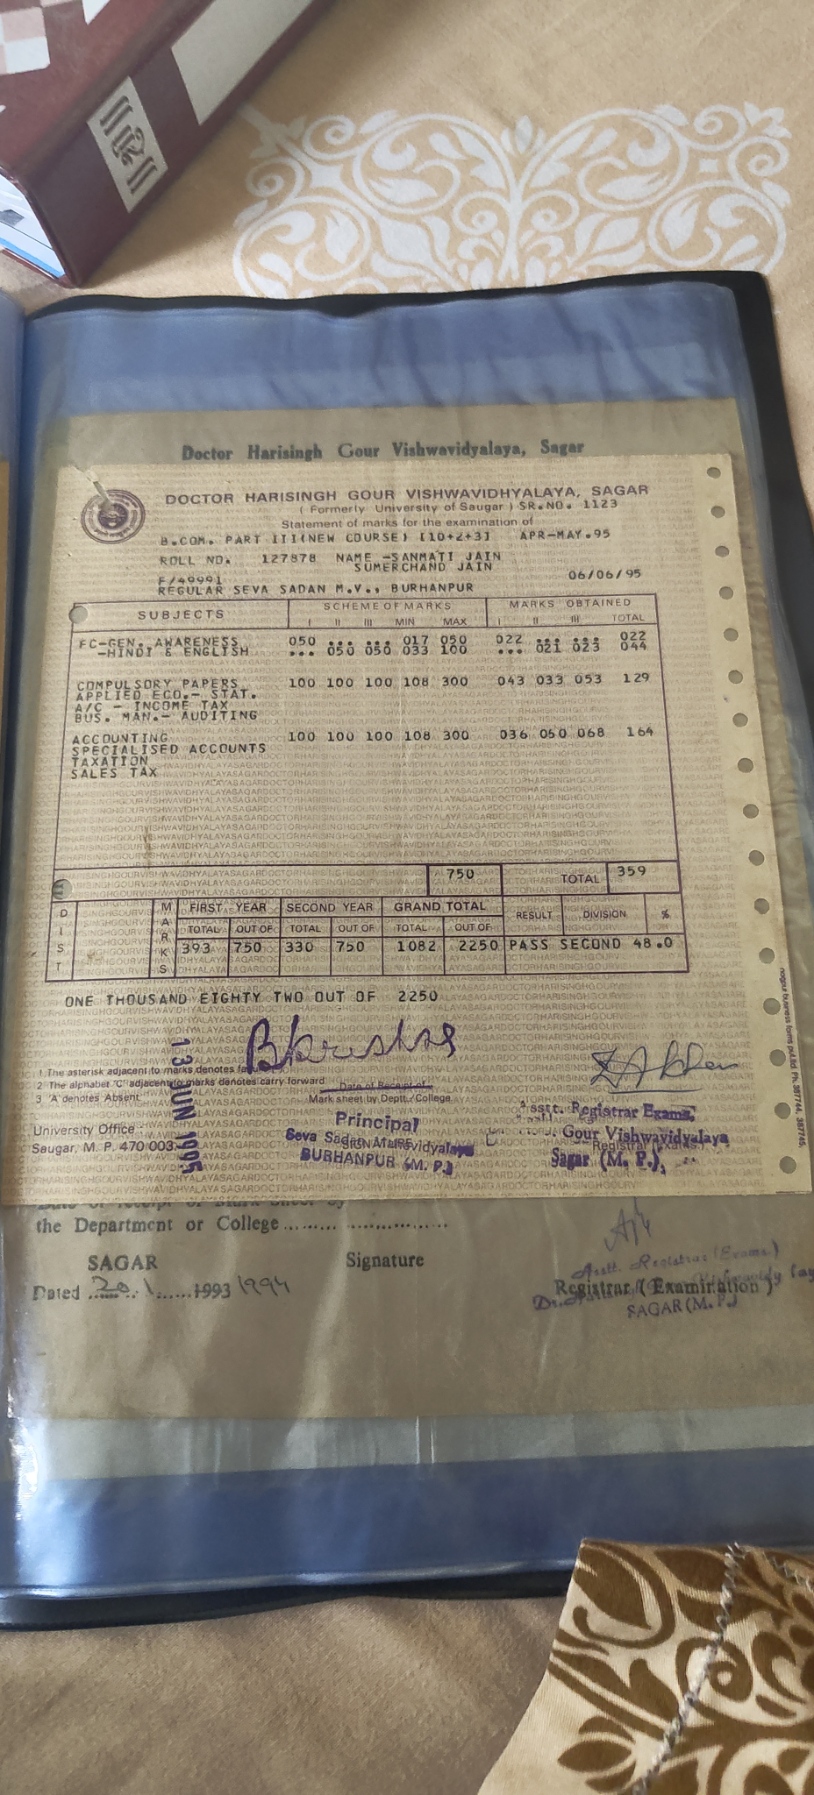 Doctor Harisingh Gour Vishwavidyalaya, Sagar
DOCTOR HARISINGH GOUR VISHWAVIDHYALAYA, SAGAR
( Formerly University of Saugar ) SR.NO. 1123
Statement of marks for the examination of
B.COM. PART III(NEW COURSE) [10+2+3] APR-MAY.95
ROLL NO. 127878 NAME -SANMATI JAIN
SUMERCHAND JAIN
F/49991 06/06/95
REGULAR SEVA SADAN M.V., BURHANPUR
SUBJECTS SCHEME OF MARKS MARKS OBTAINED
I II III MIN MAX I II III TOTAL
FC-GEN. AWARENESS 050 ... ... 017 050 022 ... ... 022
-HINDI & ENGLISH ... 050 050 033 100 ... 021 023 044
COMPULSORY PAPERS 100 100 100 108 300 043 033 053 129
APPLIED ECO.- STAT.
A/C - INCOME TAX
BUS. MAN.- AUDITING
ACCOUNTING 100 100 100 108 300 036 050 068 164
SPECIALISED ACCOUNTS
TAXATION
SALES TAX
750 TOTAL 359
DIST MARKS FIRST YEAR SECOND YEAR GRAND TOTAL RESULT DIVISION %
TOTAL OUT OF TOTAL OUT OF TOTAL OUT OF
393 750 330 750 1082 2250 PASS SECOND 48.0
ONE THOUSAND EIGHTY TWO OUT OF 2250
13 JUN 1995
1 The asterisk adjacent to marks denotes
2 The alphabet 'C' adjacent to marks denotes carry forward
3 'A' denotes Absent
Date of Receipt of
Mark sheet by Deptt./College
University Office
Saugar, M. P. 470 003
Principal
Seva Sadan Mahavidyalaya
BURHANPUR (M. P.)
Asstt. Registrar Exams,
Gour Vishwavidyalaya
Sagar (M. P.)
the Department or College
SAGAR Signature
Dated 20.1 1993 1994
Asstt. Registrar (Exams)
Registrar ( Examination )
SAGAR (M. P.)